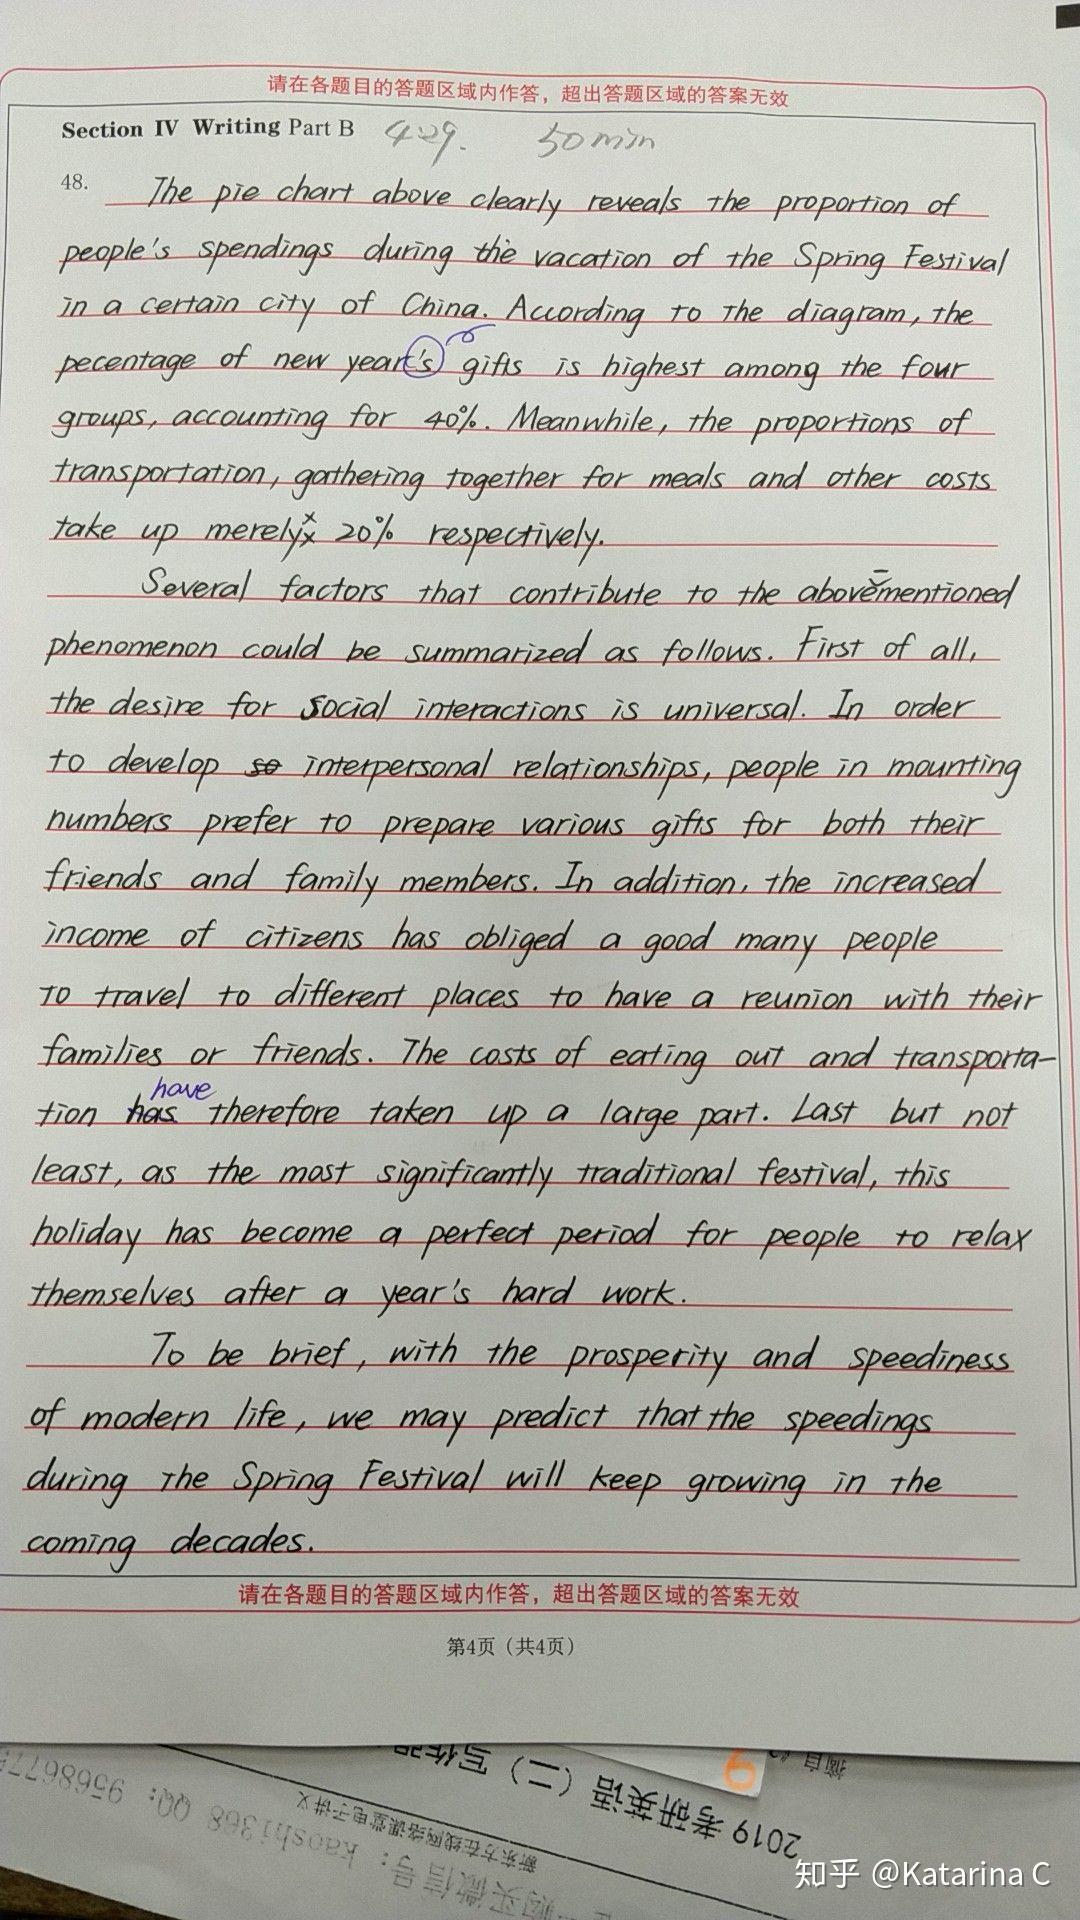 请在各题目的答题区域内作答，超出答题区域的答案无效
Section IV Writing Part B 4.29. 50min
48. The pie chart above clearly reveals the proportion of
people's spendings during the vacation of the Spring Festival
in a certain city of China. According to the diagram, the
pecentage of new year's gifts is highest among the four
groups, accounting for 40%. Meanwhile, the proportions of
transportation, gathering together for meals and other costs
take up merely 20% respectively.
Several factors that contribute to the above-mentioned
phenomenon could be summarized as follows. First of all,
the desire for social interactions is universal. In order
to develop so interpersonal relationships, people in mounting
numbers prefer to prepare various gifts for both their
friends and family members. In addition, the increased
income of citizens has obliged a good many people
to travel to different places to have a reunion with their
families or friends. The costs of eating out and transporta-
have
tion has therefore taken up a large part. Last but not
least, as the most significantly traditional festival, this
holiday has become a perfect period for people to relax
themselves after a year's hard work.
To be brief, with the prosperity and speediness
of modern life, we may predict that the speedings
during the Spring Festival will keep growing in the
coming decades.
请在各题目的答题区域内作答，超出答题区域的答案无效
第4页（共4页）
2019 考研英语（二）写作
新东方在线网络课堂电子讲义
购买微信号：kaoshi1368 QQ：9568677
知乎 @Katarina C